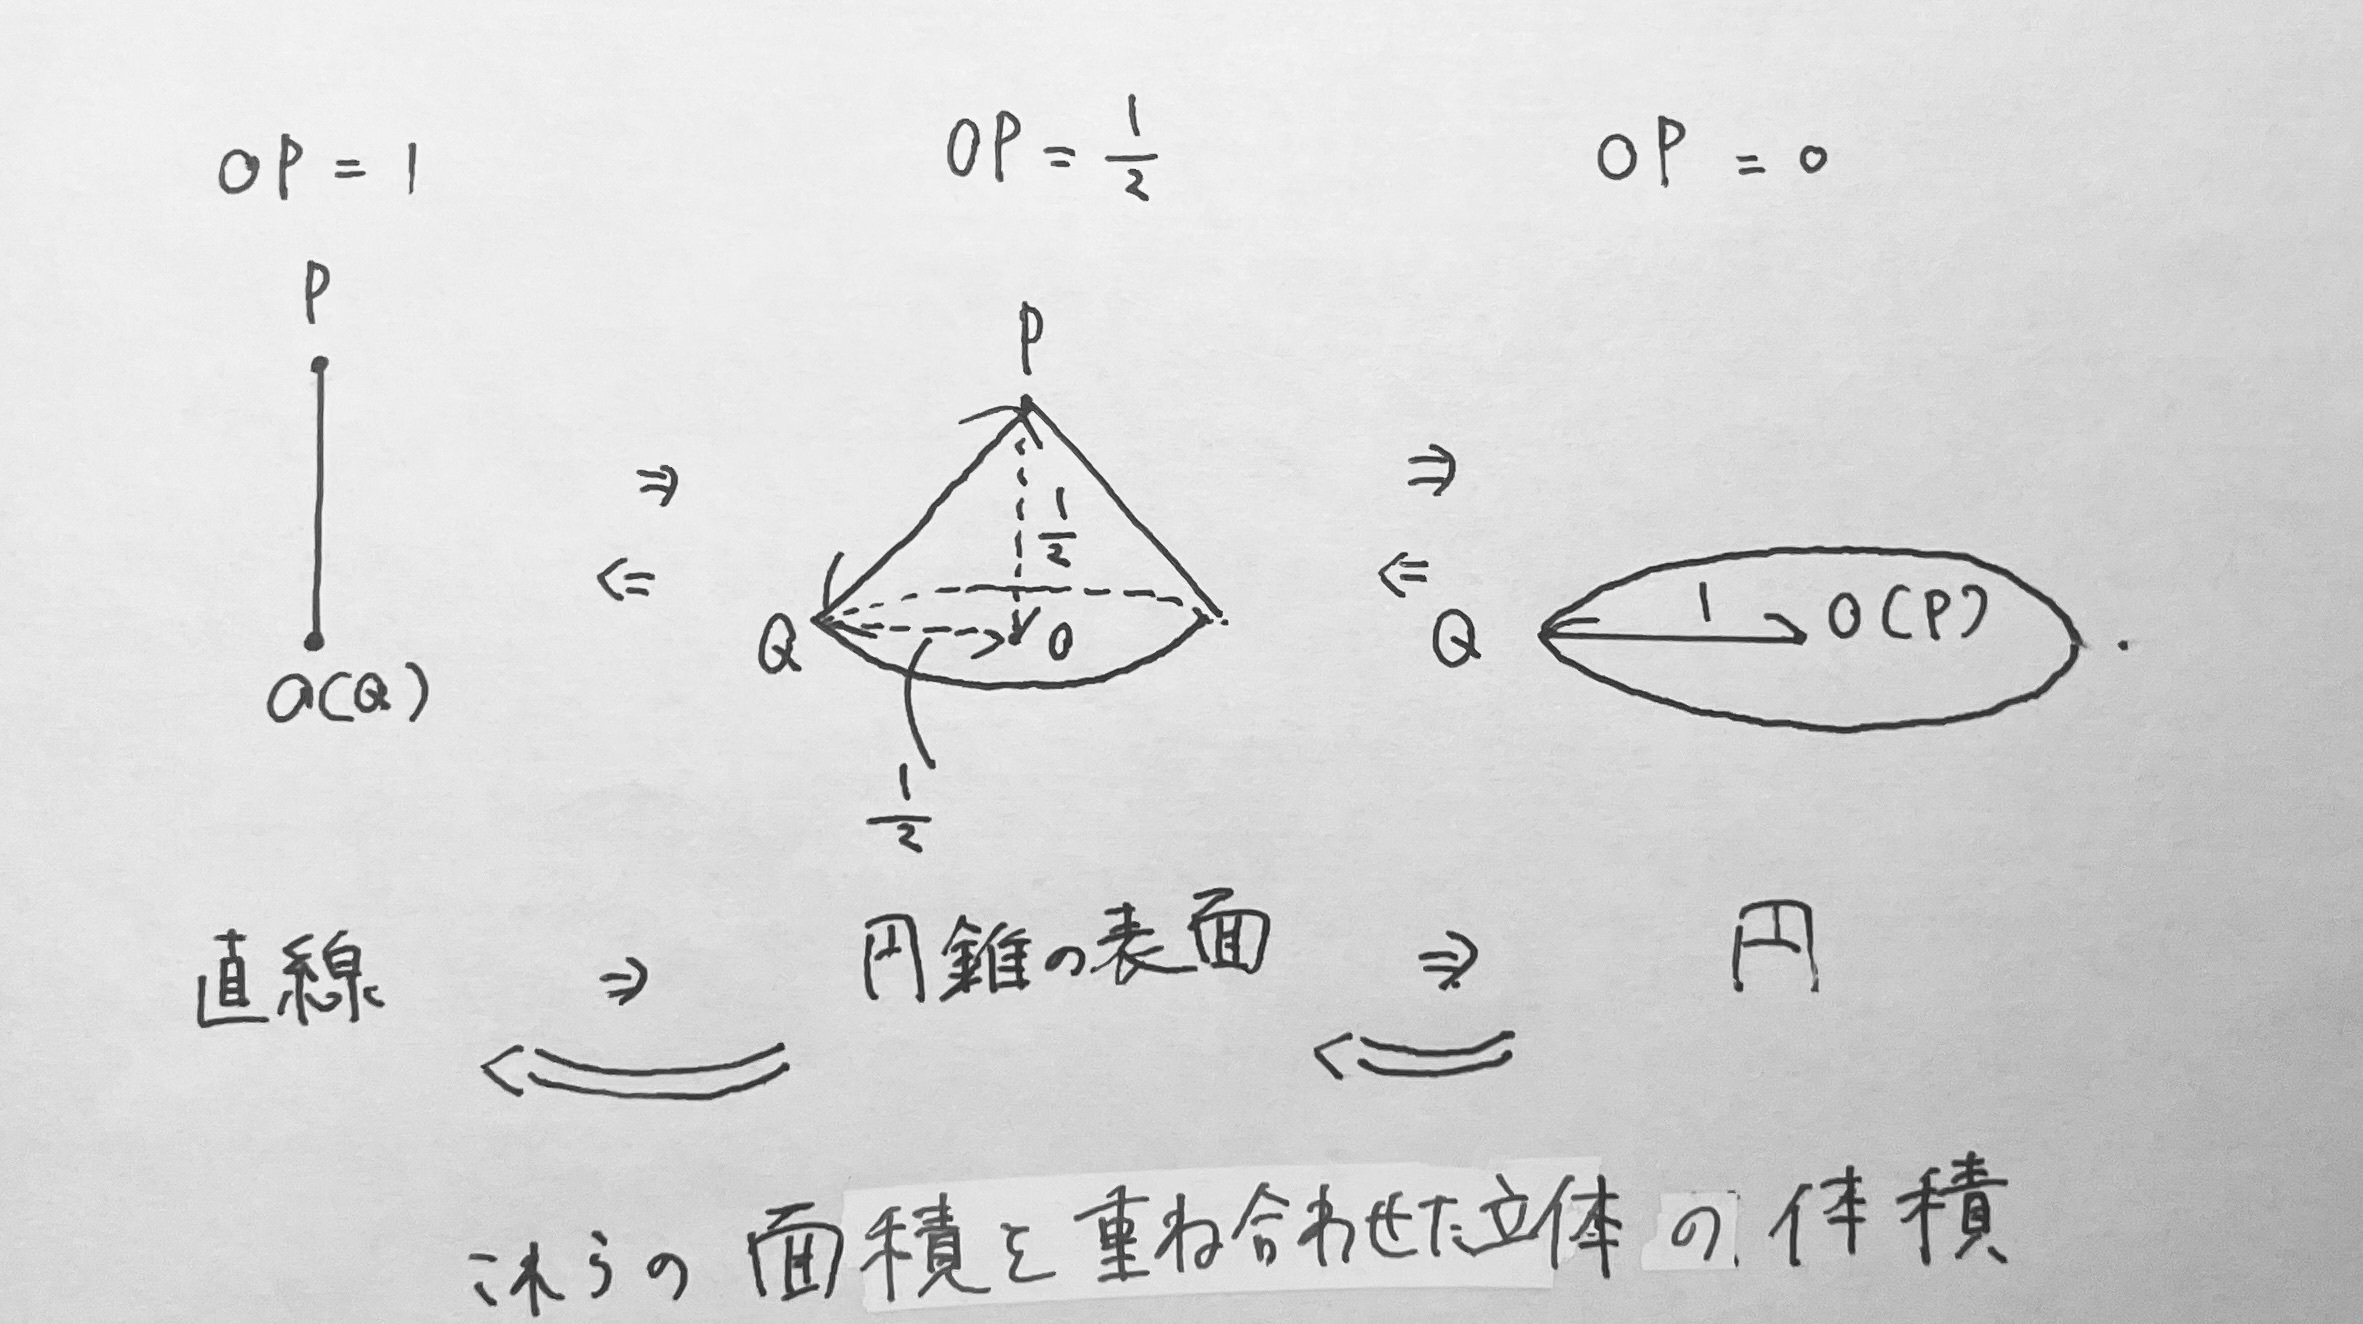 OP = 1
OP = 1/2
OP = 0
P
P
⇒
⇒
1/2
1
⇐
⇐
Q
O
Q
O(P)
O(Q)
1/2
直線 ⇒ 円錐の表面 ⇒ 円
⇐ ⇐
これらの面積を重ね合わせた立体の体積